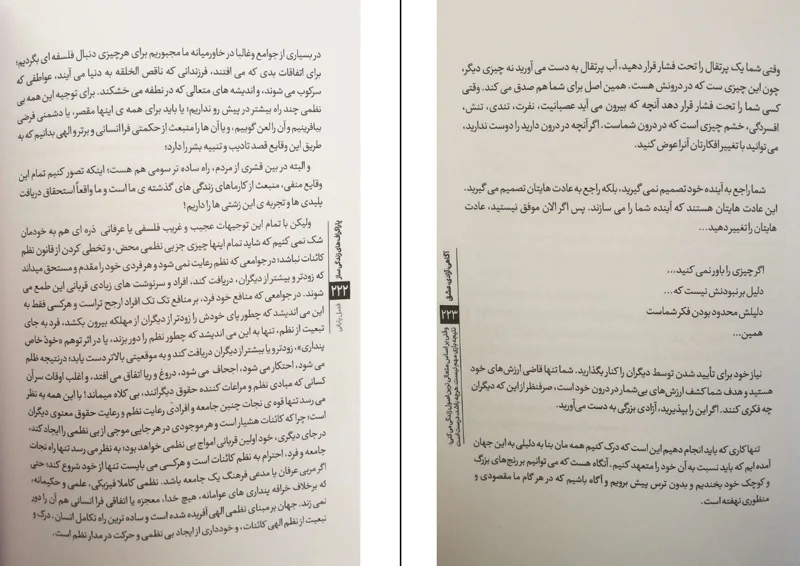 در بسیاری از جوامع و غالبا در خاورمیانه ما مجبوریم برای هرچیزی دنبال فلسفه ای بگردیم؛
برای اتفاقات بدی که می افتند، فرزندانی که ناقص الخلقه به دنیا می آیند، عواطفی که
سرکوب می شوند، و اندیشه های متعالی که در نطفه می خشکند. برای توجیه این همه بی
نظمی چند راه بیشتر در پیش رو نداریم؛ یا باید برای همه ی اینها مقصر، یا دشمنی فرضی
بیافرینیم و آن را لعن گوییم، و یا آن ها را منبعث از حکمتی فرا انسانی و برتر و الهی بدانیم که به
طریق این وقایع قصد تادیب و تنبیه بشر را دارد؛
و البته در بین قشری از مردم، راه ساده تر سومی هم هست؛ اینکه تصور کنیم تمام این
وقایع منفی، منبعث از کارماهای زندگی های گذشته ی ما است و ما واقعاً استحقاق دریافت
پلیدی ها و تجربه ی این زشتی ها را داریم؛
ولیکن با تمام این توجیهات عجیب و غریب فلسفی یا عرفانی ذره ای هم به خودمان
شک نمی کنیم که شاید تمام اینها چیزی جز بی نظمی محض، و تخطی کردن از قانون نظم
کائنات نباشد؛ در جوامعی که نظم رعایت نمی شود و هر فردی خود را مقدم و مستحق میداند
که زودتر و بیشتر از دیگران، دریافت کند، افراد و سرنوشت های زیادی قربانی این طمع می
شوند. در جوامعی که منافع خود فرد، بر منافع تک تک افراد ارجح تر است و هرکسی فقط به
این می اندیشد که چطور پای خودش را زودتر از دیگران از مهلکه بیرون بکشد، فرد به جای
تبعیت از نظم، تنها به این می اندیشد که چطور نظم را دور بزند، یا در اثر توهم «خودْ خاص
پنداری»، زودتر و یا بیشتر از دیگران دریافت کند و به موقعیتی بالاتر دست یابد؛ درنتیجه ظلم
می شود، احتکار می شود، اجحاف می شود، دروغ و ریا اتفاق می افتد، و اغلب اوقات سر آن
کسانی که مبادی نظم و مراعات کننده حقوق دیگرانند، بی کلاه میماند! با این همه به نظر
می رسد تنها قوه ی نجات چنین جامعه و افرادی رعایت نظم و رعایت حقوق معنوی دیگران
است؛ چرا که کائنات هشیار است و هر موجودی در هر جایی موجی از بی نظمی را ایجاد کند،
در جای دیگری، خود اولین قربانی امواج بی نظمی خواهد بود؛ به نظر می رسد تنها راه نجات
جامعه و فرد، احترام به نظم کائنات است و هرکسی می بایست تنها از خود شروع کند؛ حتی
اگر مربی عرفان یا مدعی فرهنگ یک جامعه باشد. نظمی کاملا فیزیکی، علمی و حکیمانه،
که برخلاف خرافه پنداری های عوامانه، هیچ خدا، معجزه یا اتفاقی فرا انسانی هم آن را دور
نمی زند. جهان بر مبنای نظمی الهی آفریده شده است و ساده ترین راه تکامل انسان، درک و
تبعیت از نظم الهی کائنات، و خودداری از ایجاد بی نظمی و حرکت در مدار نظم است.
پاراگراف‌های زندگی ساز
۲۲۲
فصل پایانی
وقتی شما یک پرتقال را تحت فشار قرار دهید، آب پرتقال به دست می آورید نه چیزی دیگر،
چون این چیزی ست که در درونش هست. همین اصل برای شما هم صدق می کند. وقتی
کسی شما را تحت فشار قرار دهد آنچه که بیرون می آید عصبانیت، نفرت، تندی، تنش،
افسردگی، خشم چیزی است که در درون شماست. اگر آنچه در درون دارید را دوست ندارید،
می توانید با تغییر افکارتان آنرا عوض کنید.
شما راجع به آینده خود تصمیم نمی گیرید، بلکه راجع به عادت هایتان تصمیم می گیرید.
این عادت هایتان هستند که آینده شما را می سازند. پس اگر الان موفق نیستید، عادت
هایتان را تغییر دهید...
اگر چیزی را باور نمی کنید...
دلیل بر نبودنش نیست که...
دلیلش محدود بودن فکر شماست
همین...
نیاز خود برای تأیید شدن توسط دیگران را کنار بگذارید. شما تنها قاضی ارزش های خود
هستید و هدف شما کشف ارزش های بی‌شمار در درون خود است، صرفنظر از این که دیگران
چه فکری کنند. اگر این را بپذیرید، آزادی بزرگی به دست می‌آورید.
تنها کاری که باید انجام دهیم این است که درک کنیم همه مان بنا به دلیلی به این جهان
آمده ایم که باید نسبت به آن خود را متعهد کنیم. آنگاه هست که می توانیم بر رنج های بزرگ
و کوچک خود بخندیم و بدون ترس پیش برویم و آگاه باشیم که در هر گام ما مقصودی و
منظوری نهفته است.
آگاهی، آزادی، عشق
۲۲۳
وقتی بر اساس متعال ترین اصول زندگی می کنی،
نتیجه بازی مهم نیست، هرچه باشد درست است